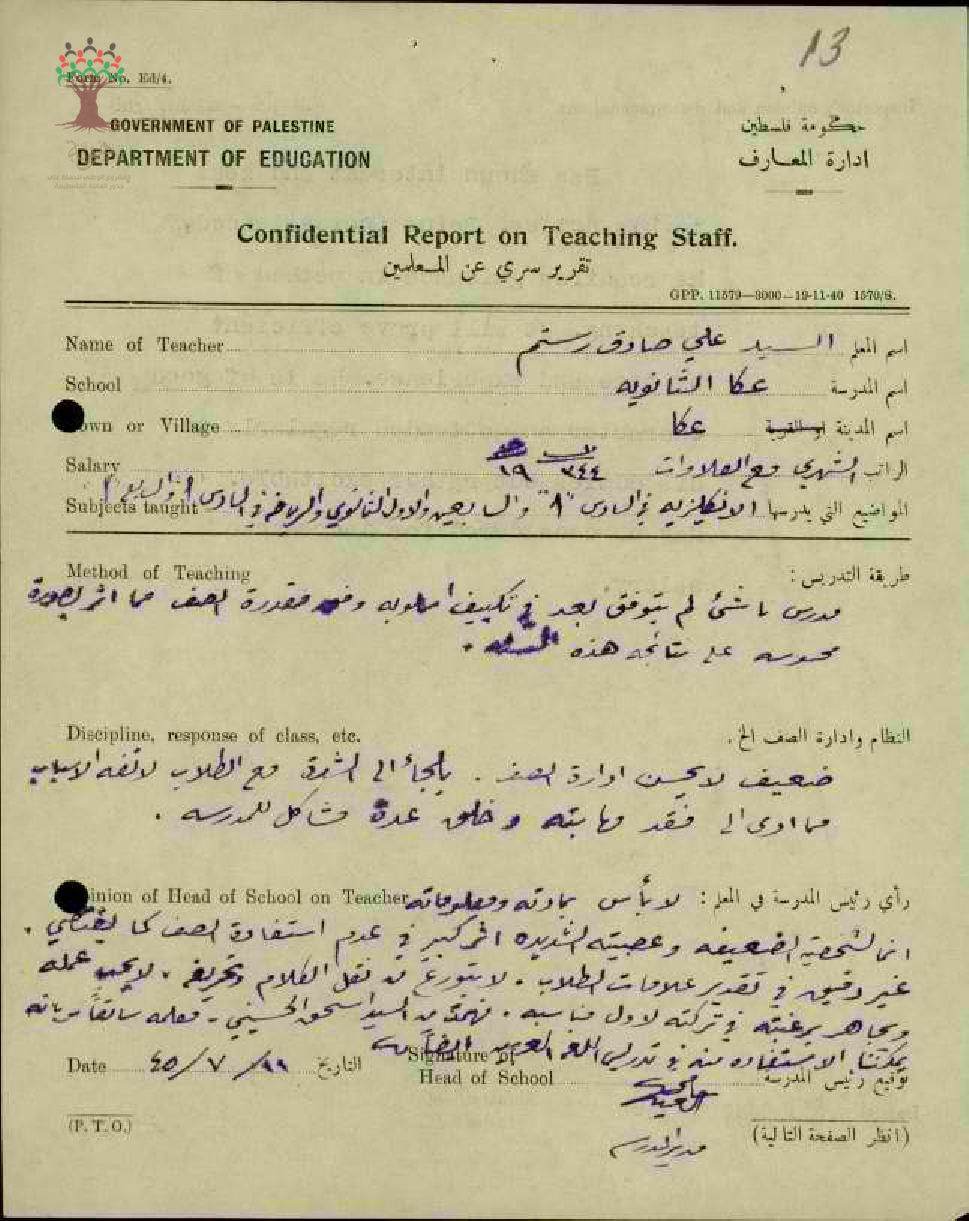 13
Form No. Ed/4.
GOVERNMENT OF PALESTINE
DEPARTMENT OF EDUCATION
حكومة فلسطين
ادارة المعارف
Confidential Report on Teaching Staff.
تقرير سري عن المعلمين
GPP. 11579—3000—19-11-40 1570/S.
Name of Teacher السيد علي صادق رستم اسم المعلم
School عكا الثانويه اسم المدرسة
Town or Village عكا اسم المدينة او القرية
Salary ١٩ ٣٤٤ الراتب الشهري مع العلاوات
Subjects taught الانكليزيه في السادس "٨" والسابعين والاول الثانوي والرياضه في السادس المواضيع التي يدرسها
Method of Teaching طريقة التدريس:
مدرس ناشئ لم يتوفق بعد في تكييف اسلوبه مقدرة الصف مما اثر بصورة
محسوسه على نتائجه هذه السنه.
Discipline, response of class, etc. النظام وادارة الصف الخ.
ضعيف لا يحسن ادارة الصف. يلجأ الى الشدة مع الطلاب لاتفه الاسباب
مما ادى الى فقد مهابته وخلق عدة مشاكل للمدرسه.
Opinion of Head of School on Teacher رأي رئيس المدرسة في المعلم: لا بأس بمادته ومعلوماته
انما لشخصيته الضعيفه وعصبيته الشديده اثر كبير في عدم استفادة الصف كما يقتضي.
غير دقيق في تقدير علامات الطلاب. لا يتورع عن نقل الكلام وتحريفه. لا يحب عمله
ويجاهر برغبته في تركته لاول مناسبه. من السيد اسحق الحسيني - معلمه سابقاً بانه
يمكننا الاستفاده منه في تدريس اللغه العربيه
Date ٤٥/٧/١١ التاريخ
Signature of Head of School توقيع رئيس المدرسة
مدير المدرسه
(P. T. O.)
(انظر الصفحة التالية)